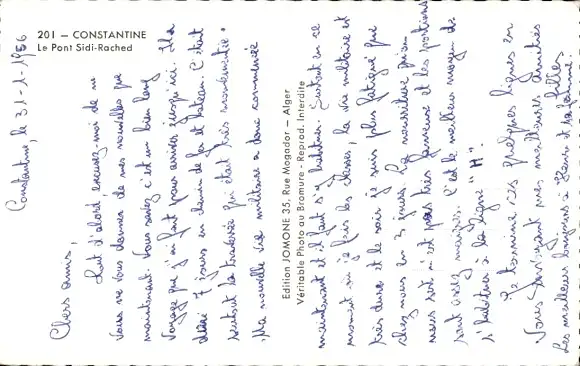 201 — CONSTANTINE
Le Pont Sidi-Rached
Constantine, le 31-1-1956
Chers amis,
Tout d'abord, excusez-moi de ne
vous donner de mes nouvelles que
maintenant. Vous savez c'est un bien long
voyage que j'ai fait pour arriver jusqu'ici. Il a
duré 7 jours en chemin de fer et bateau. C'était
surtout la traversée qui était très mouvementée.
Ma nouvelle vie militaire a donc commencé
Edition JOMONE 35, Rue Mogador — Alger
Véritable Photo au Bromure - Reprod. Interdite
maintenant et il faut s'y habituer. Surtout en ce
moment où je fais les classes, la vie militaire est
très dure et le soir je suis plus fatigué que
chez nous en 3 jours. La nourriture qu'on
nous sert n'est pas très fameuse et les portions
sont assez maigres. C'est le meilleur moyen de
s'habituer à la ligne "H".
Je termine ces quelques lignes en
vous envoyant mes meilleures amitiés
Les meilleurs bonjours à Pierre et sa femme.
filles